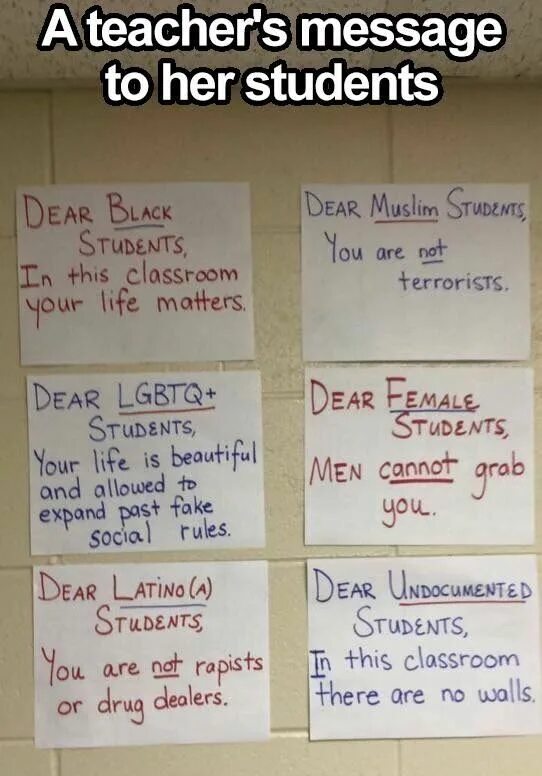 A teacher's message
to her students
DEAR BLACK
STUDENTS,
In this classroom
your life matters.
DEAR Muslim STUDENTS,
You are not
terrorists.
DEAR LGBTQ+
STUDENTS,
Your life is beautiful
and allowed to
expand past fake
social rules.
DEAR FEMALE
STUDENTS,
MEN cannot grab
you.
DEAR LATINO(A)
STUDENTS,
You are not rapists
or drug dealers.
DEAR UNDOCUMENTED
STUDENTS,
In this classroom
there are no walls.